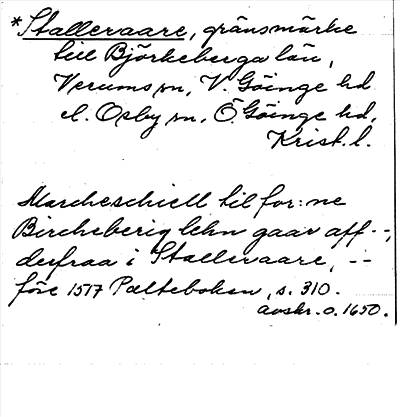 *Stallevaare, gränsmärke
till Björkeberga län,
Verums sn, V. Göinge hd
el. Osby sn, Ö. Göinge hd,
Krist. l.
Marcheschiell til for:ne
Bircheberig lehn gaar aff --,
derfraa i Stallevaare, --
före 1517 Pælteboken, s. 310.
avskr. o. 1650.